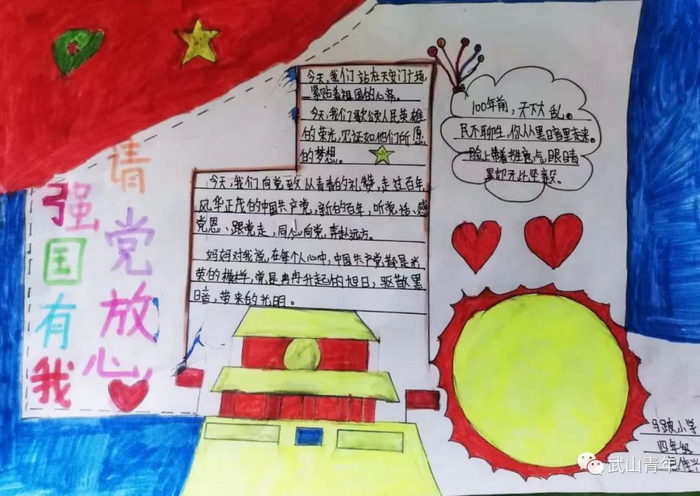 请党放心
强国有我
今天,我们站在天安门广场,
紧贴着祖国的心房。
今天,我们歌颂人民英雄
的荣光,见证如他们所愿
的梦想。
今天,我们向党致以青春的礼赞,走过百年,
风华正茂的中国共产党,新的百年,听党话、感
党恩、跟党走,同心向党,奔赴远方。
妈妈对我说,在每个人心中,中国共产党都是光
荣的榜样,党是冉冉升起的旭日,驱散黑
暗,带来的光明。
100年前,天下大乱。
民不聊生,你从黑暗里走来。
脸上带着
眼睛
里却无比坚毅。
小学
四年级
武山青年